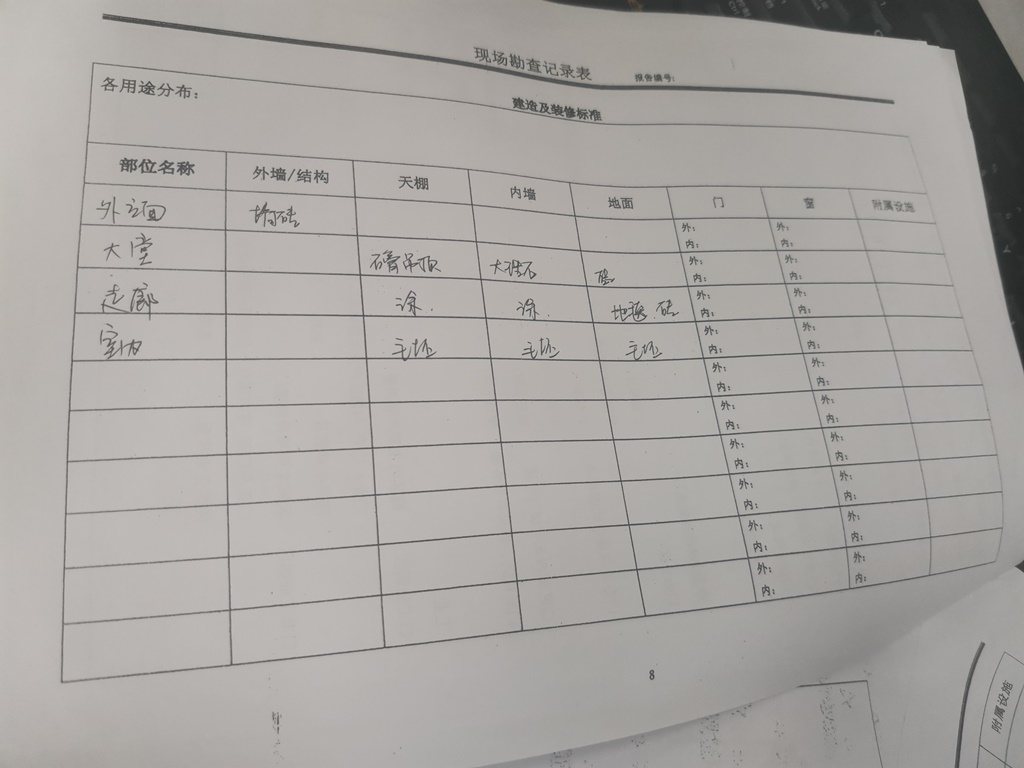 现场勘查记录表 报告编号:
各用途分布： 建造及装修标准
部位名称 外墙/结构 天棚 内墙 地面 门 窗 附属设施
外立面 墙砖 外: 外:
内: 内:
大堂 石膏吊顶 大理石 砖 外: 外:
内: 内:
走廊 涂. 涂. 地砖 外: 外:
内: 内:
室内 毛坯 毛坯 毛坯 外: 外:
内: 内:
外: 外:
内: 内:
外: 外:
内: 内:
外: 外:
内: 内:
外: 外:
内: 内:
外: 外:
内: 内:
外: 外:
内: 内:
8
附属设施